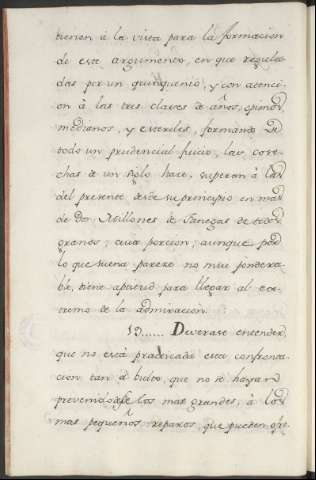 tienen à la vista para la formacion
de este argumento, en que regula-
das por un quinquenio, y con atenci-
on à las tres claves de años, opimos,
medianos, y esteriles, formando de
todo un prudencial juicio, las cose-
chas de un siglo hace, superan à las
del presente desde su principio en mas
de dos Millones de fanegas de todos
granos; cuia porcion, aunque por
lo que suena parece no mui pondera-
ble, tiene aptitud para llegar al es-
tremo de la admiracion.
19...... Deverase entender,
que no está practicada esta confronta-
cion tan à bulto, que no se hayan
prevenido desde los mas grandes, à los
mas pequeños reparos, que pueden ofre